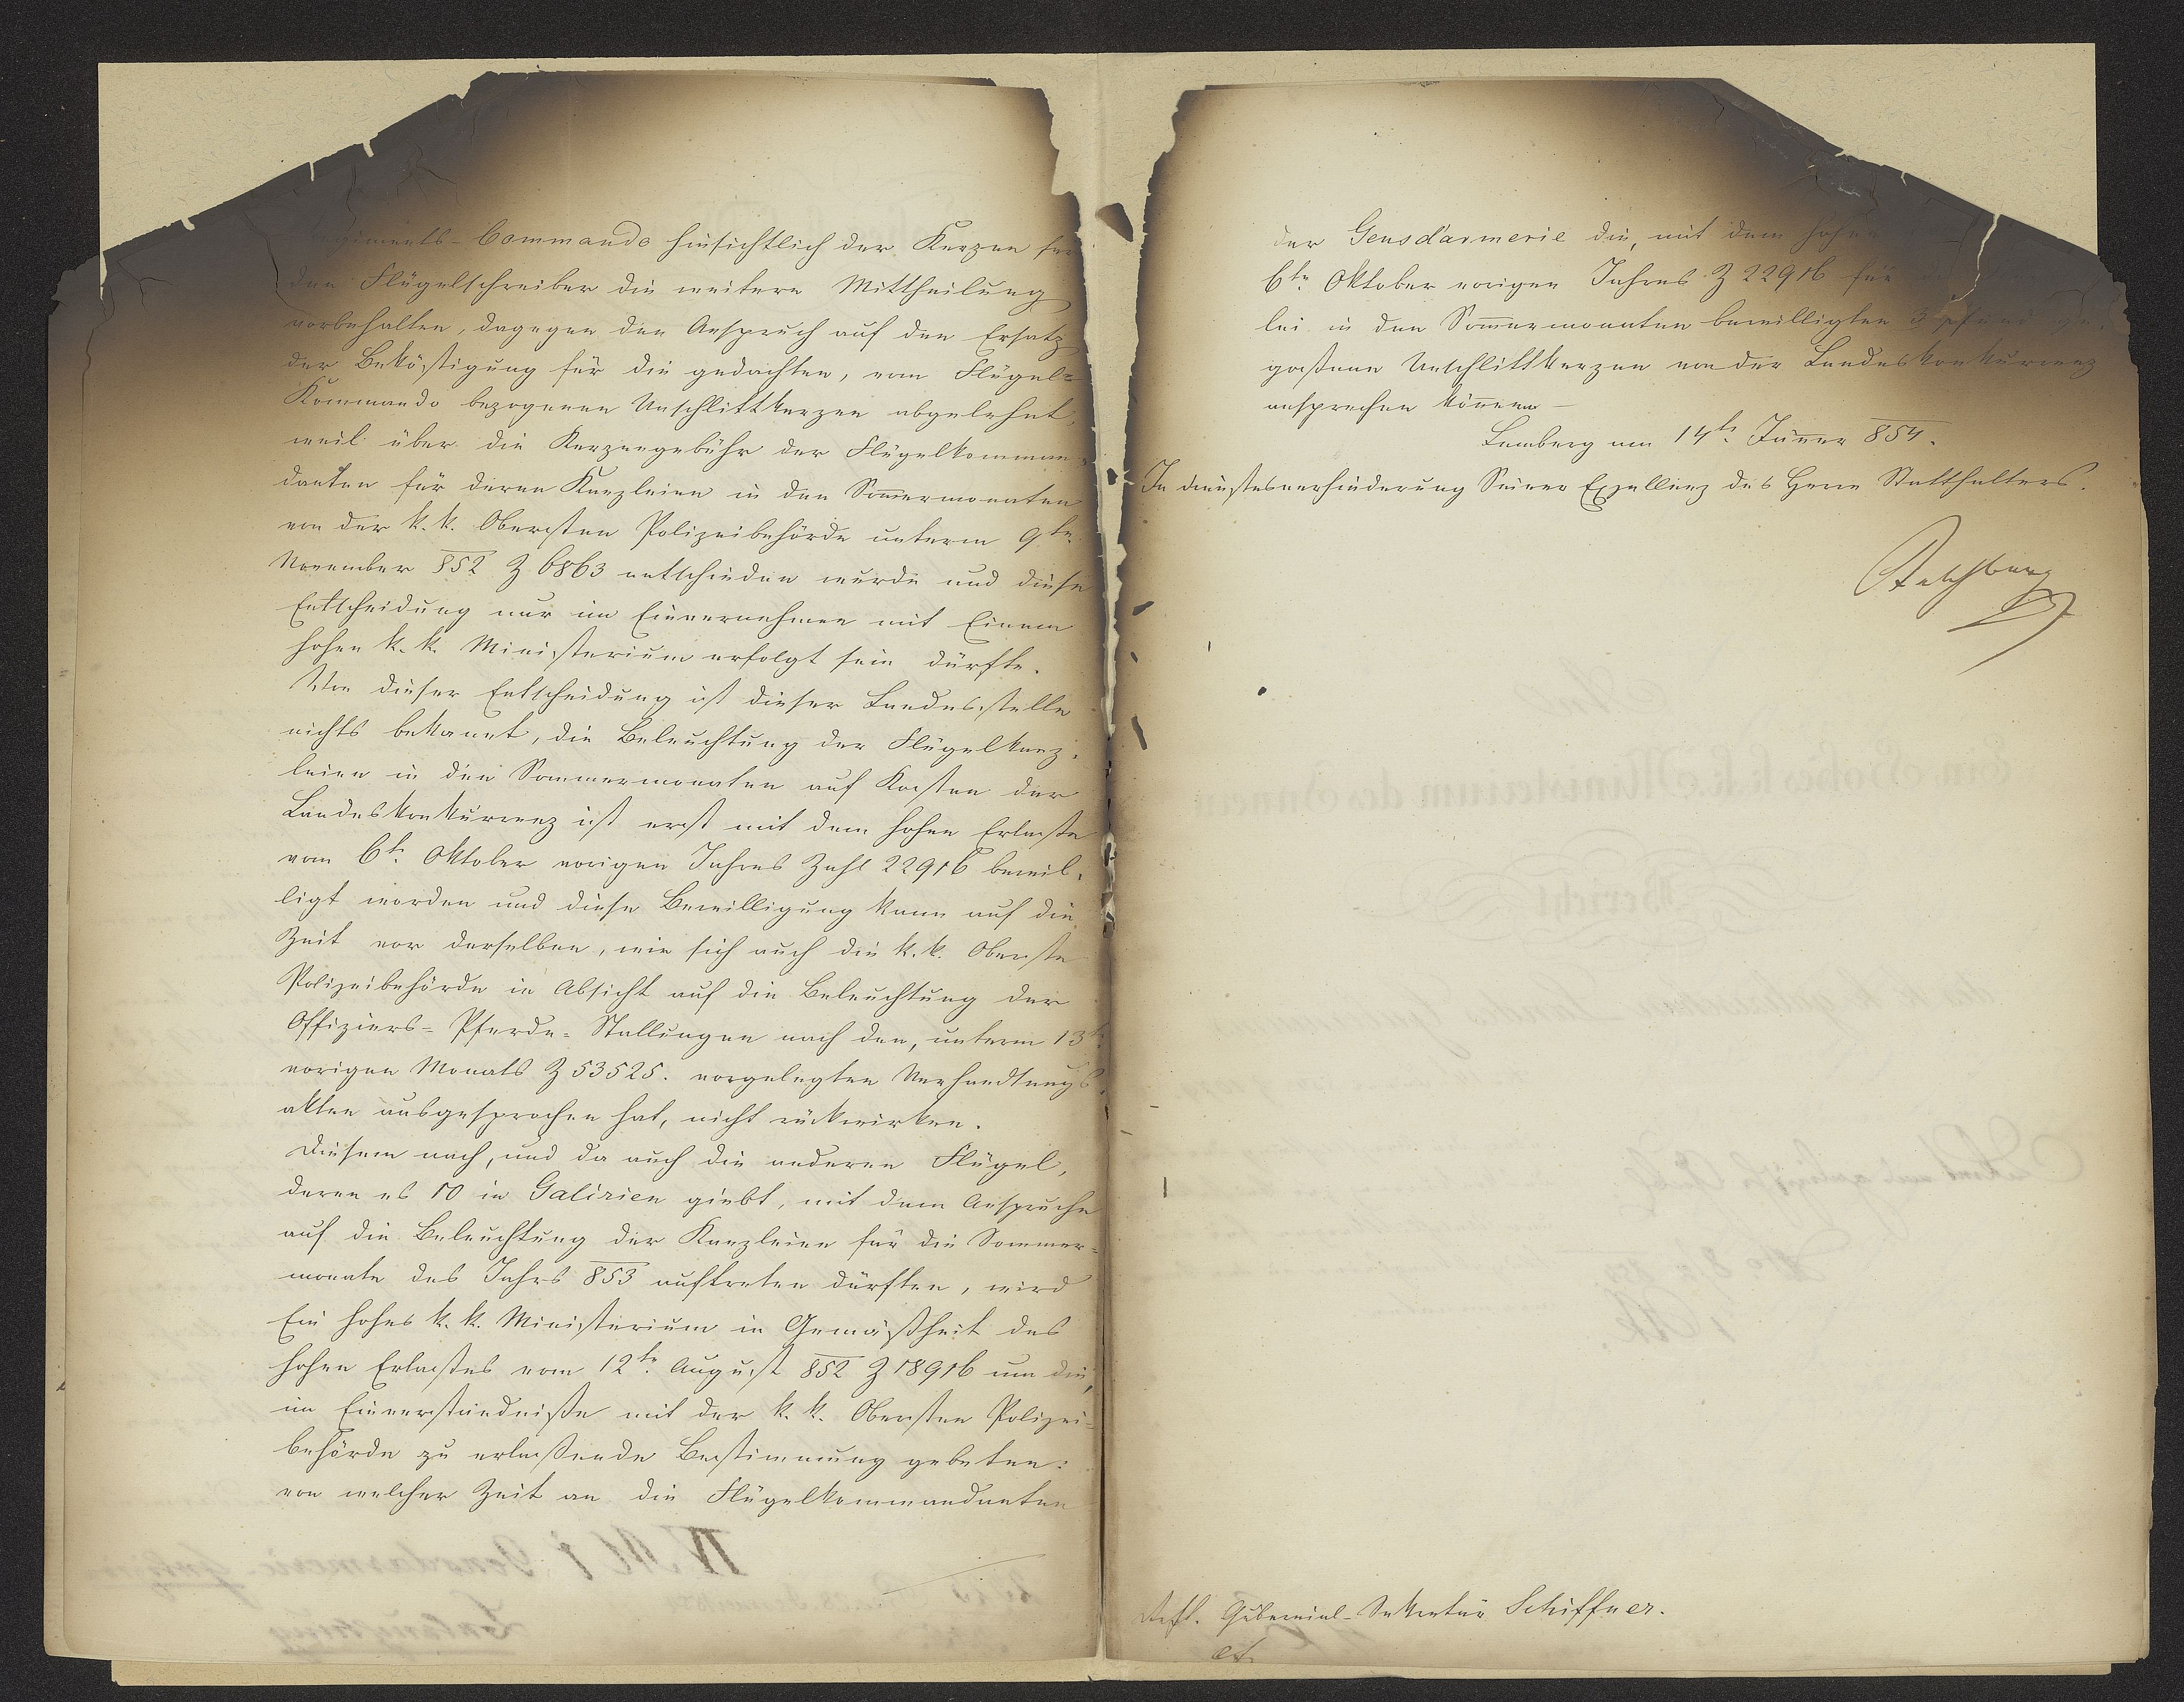 Regiments-Commando hinsichtlich der Kerzen für
den Flügelschreiber die weitere Mittheilung
vorbehalten, dagegen den Anspruch auf den Ersatz
der Beköstigung für die gedachten, vom Flügel=
Kommando bezogenen Unschlittkerzen abgelehnt,
weil über die Kerzengebühr der Flügelkomman=
danten für deren Kanzleien in den Som̄ermonaten
von der k. k. Obersten Polizeibehörde unterm 9ten
November 852 Z 6863 entschieden wurde und diese
Entscheidung nur im Einvernehmen mit Einem
hohen k. k. Ministerium erfolgt sein dürfte.
Von dieser Entscheidung ist dieser Landesstelle
nichts bekannt, die Beleuchtung der Flügelkanz=
leien in den Sommermonaten auf Kosten der
Landeskonkurrenz ist erst mit dem hohen Erlaße
vom 6t. Oktober vorigen Jahres Zahl 22916 bewil=
ligt worden und diese Bewilligung kann auf die
Zeit vor derselben, wie sich auch die k. k. Oberste
Polizeibehörde in Absicht auf die Beleuchtung der
Offiziers-Pferde-Stallungen nach den, unterm 13t.
vorigen Monats Z 53525. vorgelegten Verhandlungs=
akten ausgesprochen hat, nicht rückwirken.
Diesem nach, und da auch die anderen Flügel,
deren es 10 in Galizien giebt, mit dem Anspruche
auf die Beleuchtung der Kanzleien für die Sommer=
monate des Jahrs 853 auftreten dürften, wird
Ein hohes k. k. Ministerium in Gemäßheit des
hohen Erlaßes vom 12ten August 852 Z 18916 um die,
im Einverständniße mit der k. k. Obersten Polizei=
behörde zu erlaßende Bestimmung gebeten:
von welcher Zeit an die Flügelkommandanten
der Gensdarmerie die, mit dem hohen
6ten Oktober vorigen Jahres Z 22916 für
lei in den Som̄ermonaten bewilligten 3 Pfund ge=
goßene Unschlittkerzen von der Landeskonkurrenz
ansprechen kön̄en —
Lemberg am 14t. Jän̄er 854.
In Dienstesverhinderung Seiner Exzellenz des Herrn Statthalters.
Gubernial-Sekretär Schiffner.